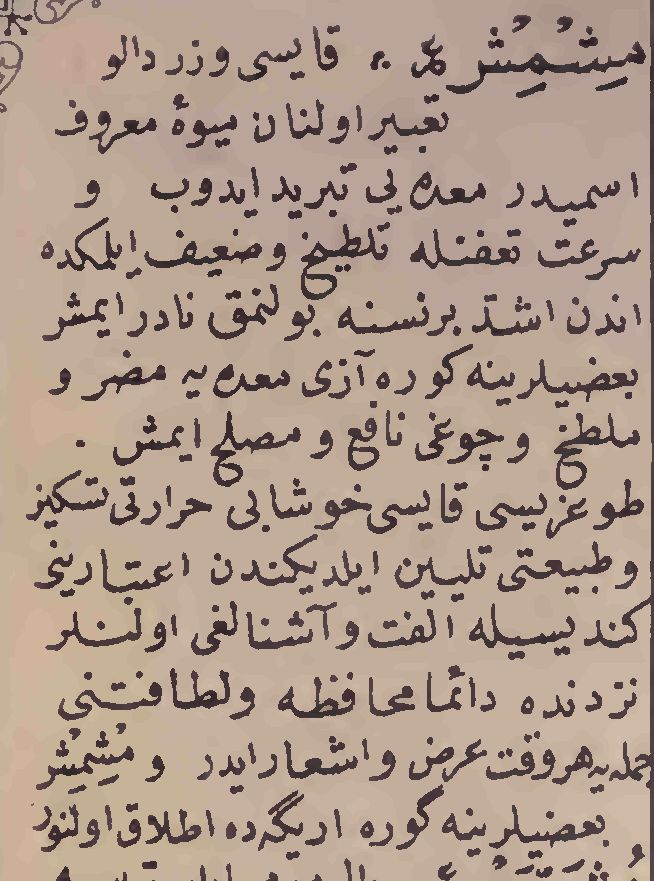 مِشْمِشْ ع . قايسى وزردالو
تعبير اولنان ميوهٔ معروف
اسميدر معده يى تبريد ايدوب و
سرعت تعفنله تلطيخ وضعيف ايلمكده
اندن اشد برنسنه بولنمق نادر ايمش
بعضيلرينه كوره آزى معده يه مضر و
ملطخ و چوغى نافع و مصلح ايمش .
طوغريسى قايسى خوشابى حرارتى تسكين
وطبيعتى تليين ايلديكندن اعتبارينى
كنديسيله الفت وآشنالغى اولنلر
نزدنده دائما محافظه ولطافتنى
جمله يه هر وقت عرض واشعار ايدر و مُشْمُشْ
بعضيلرينه كوره اريگه ده اطلاق اولنور